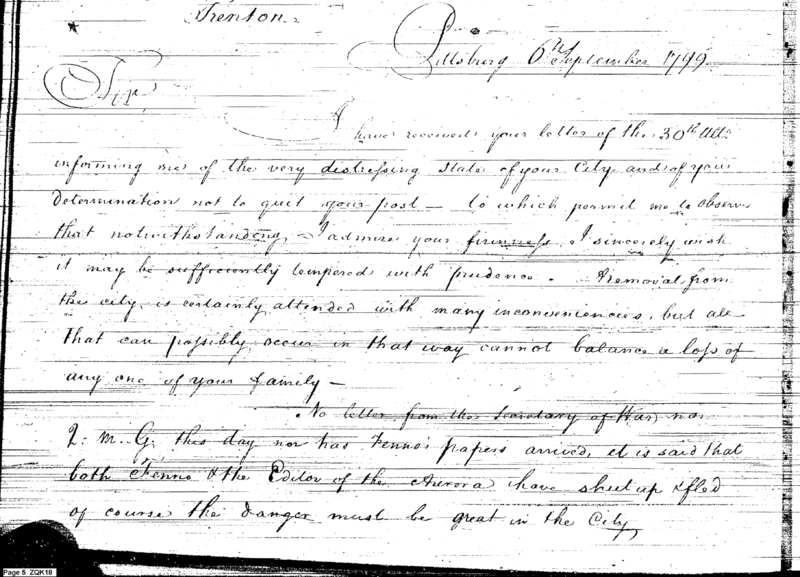 Trenton.
Pittsburg 6th September 1799
Sir
I have received your letter of the 30th Ult:
informing me of the very distressing state of your City and of your
determination not to quit your post — to which permit me to observe
that notwithstanding I admire your firmness, I sincerely wish
it may be sufficiently tempered with prudence. A removal from
the city is certainly attended with many inconveniencies, but all
that can possibly occur in that way cannot balance a loss of
any one of your family —
No letter from the Secretary of War nor
Q: M. G. this day nor has Fenno's papers arrived, it is said that
both Fenno & the Editor of the Aurora have shut up & fled
of course the danger must be great in the City,
Page 5 ZQK18